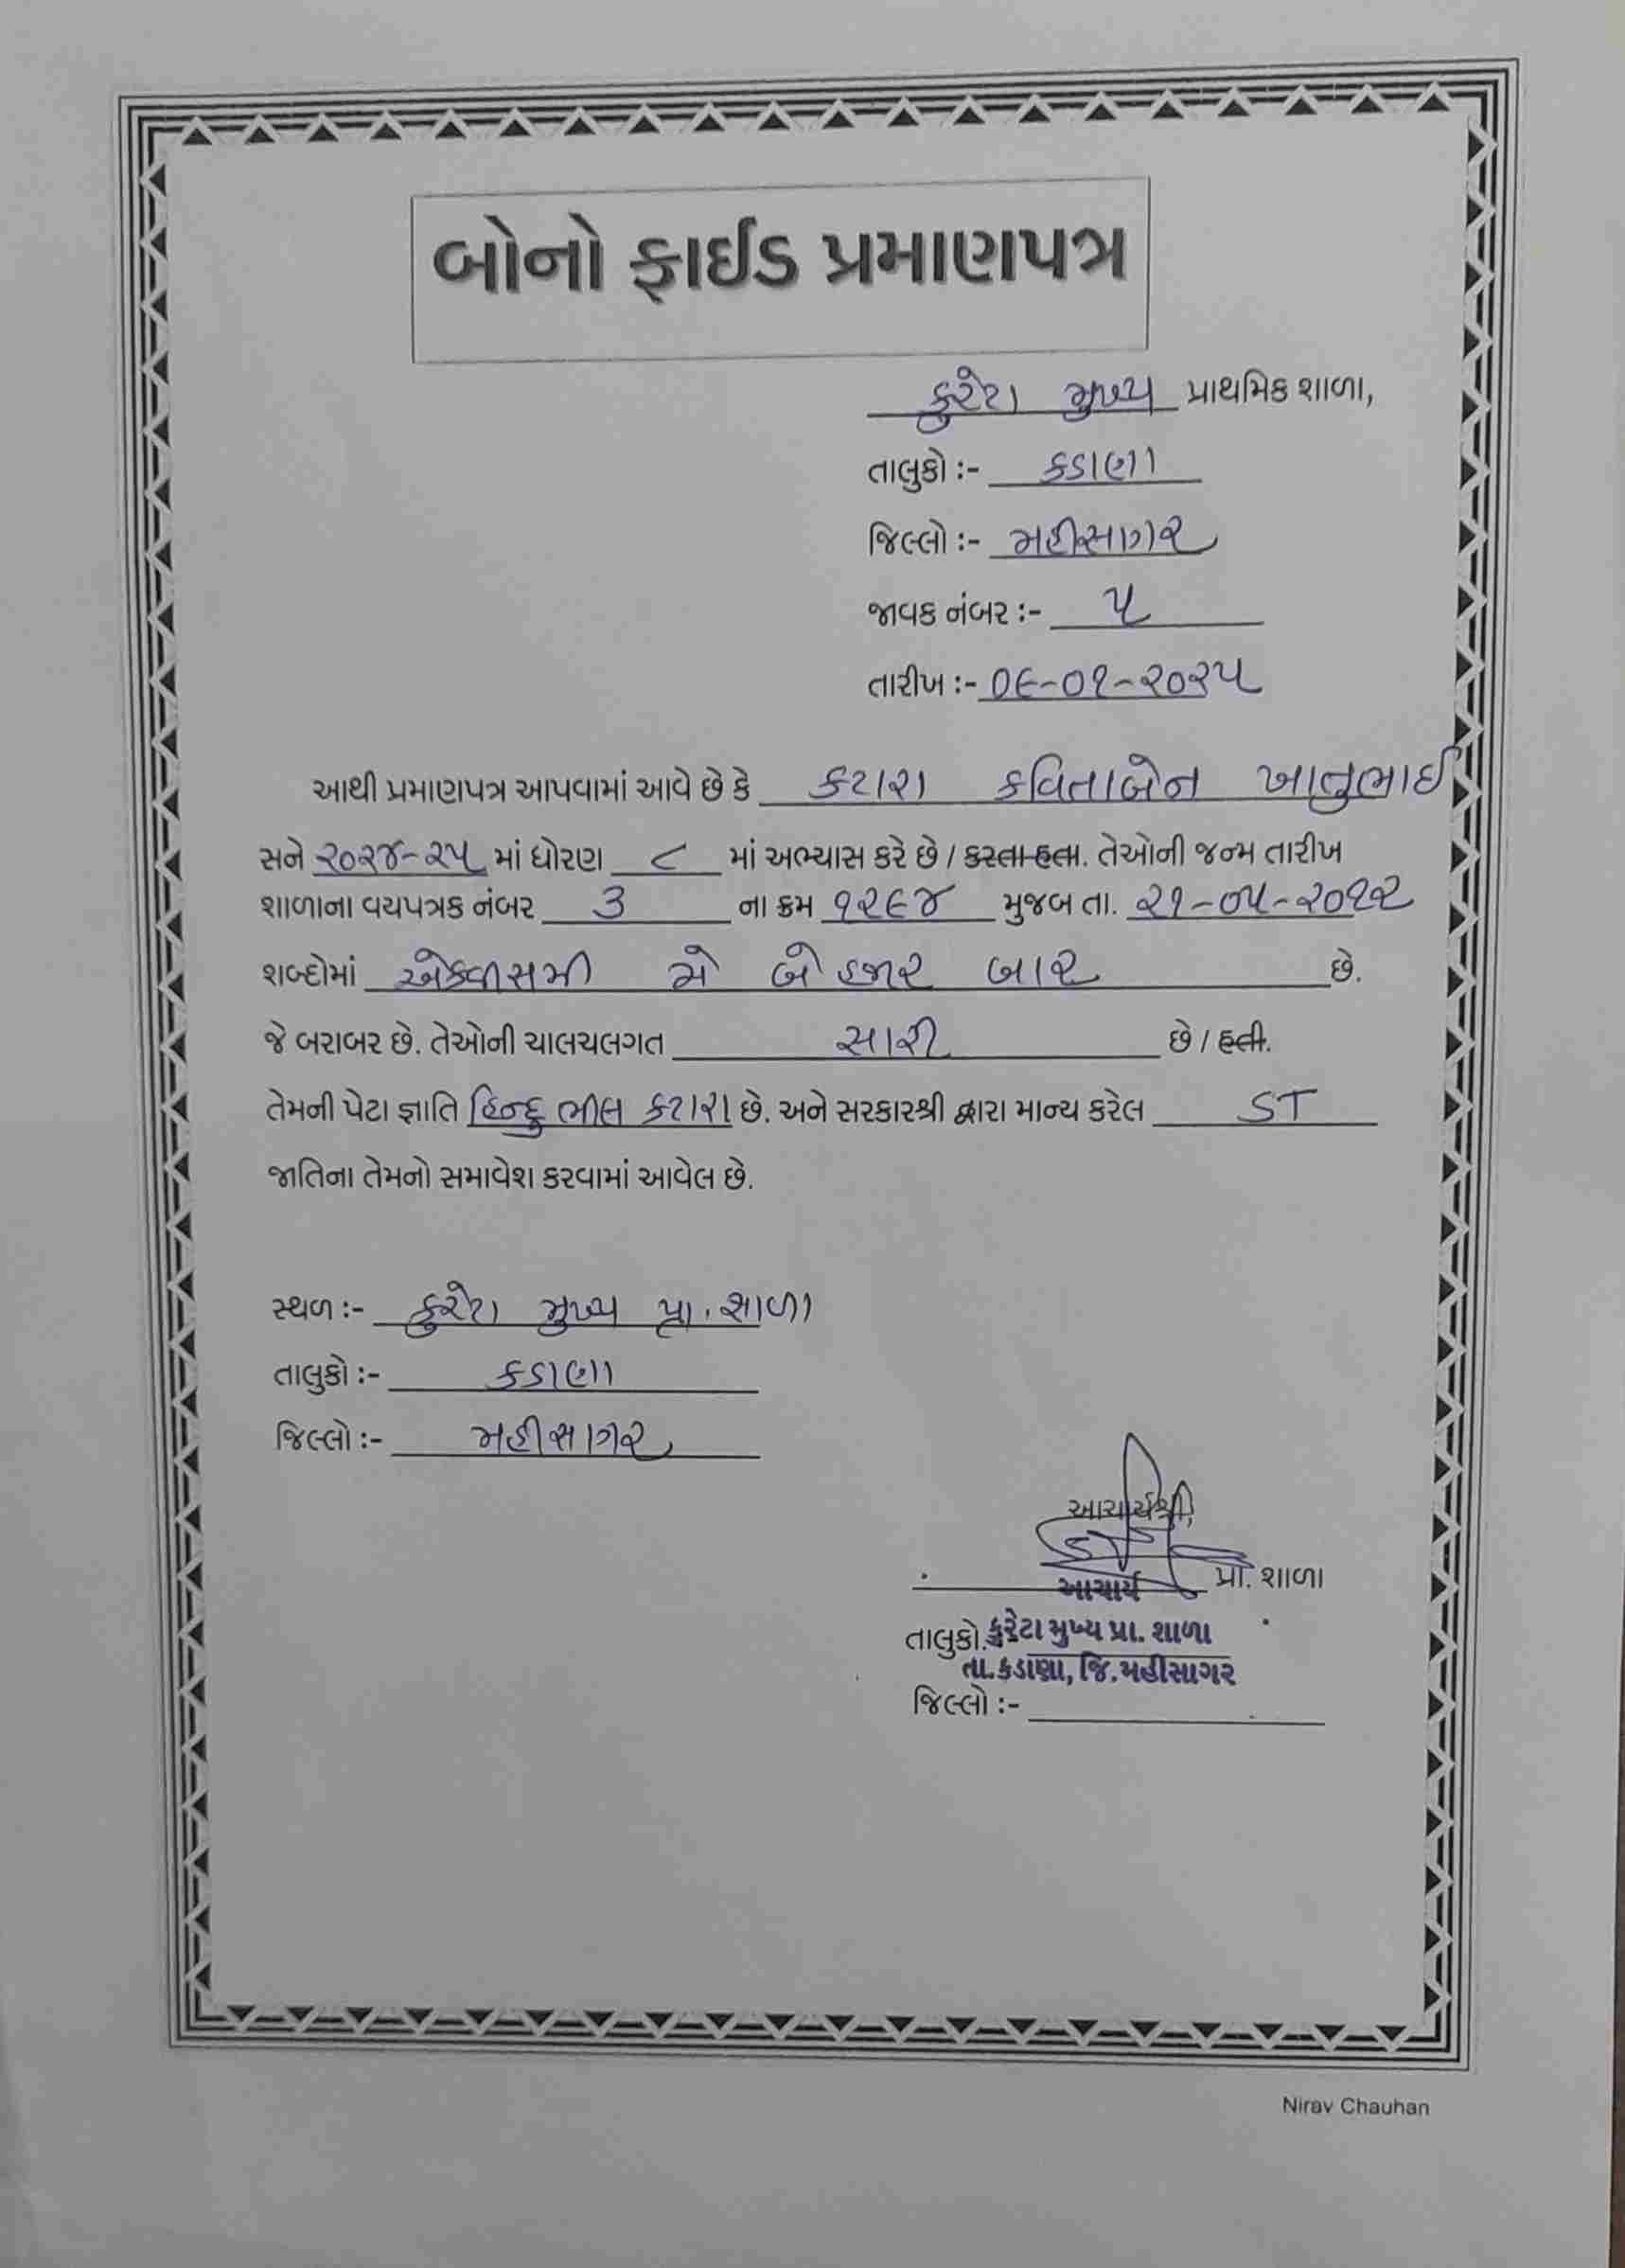 બોનો ફાઈડ પ્રમાણપત્ર
કુરેટા મુખ્ય પ્રાથમિક શાળા,
તાલુકો :- કડાણા
જિલ્લો :- મહીસાગર
જાવક નંબર :- ૫
તારીખ :- ૦૯-૦૧-૨૦૨૫
આથી પ્રમાણપત્ર આપવામાં આવે છે કે કટારા કવિતાબેન ખાતુભાઈ
સને ૨૦૨૪-૨૫ માં ધોરણ ૮ માં અભ્યાસ કરે છે / કરતા હતા. તેઓની જન્મ તારીખ
શાળાના વયપત્રક નંબર ૩ ના ક્રમ ૧૨૯૪ મુજબ તા. ૨૧-૦૫-૨૦૧૨
શબ્દોમાં એકવીસમી મે બે હજાર બાર છે.
જે બરાબર છે. તેઓની ચાલચલગત સારી છે / હતી.
તેમની પેટા જ્ઞાતિ હિન્દુ ભીલ કટારા છે. અને સરકારશ્રી દ્વારા માન્ય કરેલ ST
જાતિના તેમનો સમાવેશ કરવામાં આવેલ છે.
સ્થળ :- કુરેટા મુખ્ય પ્રા. શાળા
તાલુકો :- કડાણા
જિલ્લો :- મહીસાગર
આચાર્યશ્રી,
પ્રા. શાળા
આચાર્ય
તાલુકો કુરેટા મુખ્ય પ્રા. શાળા
તા.કડાણા, જિ.મહીસાગર
જિલ્લો :-
Nirav Chauhan